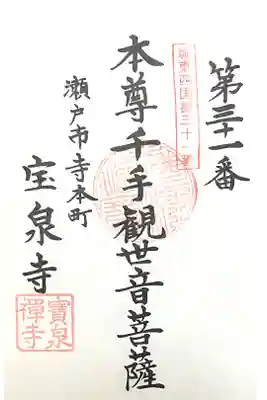 第三十一番
新東西国第三十一番
本尊千手観世音菩薩
瀬戸市寺本町
宝泉寺
寶泉禪寺